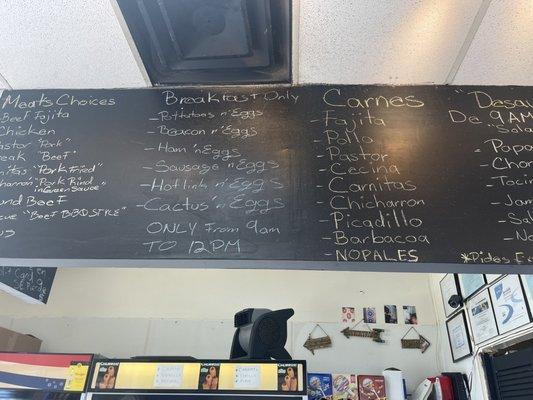 Meats Choices
Beef Fajita
Chicken
astor "Pork"
eak "Beef"
nitas "Pork Fried"
charron "Pork Rind"
in Green Sauce"
und Beef
cue "Beef BBQ STYLE"
Breakfast Only
- Potatoes n' Eggs
- Beacon n' Eggs
- Ham 'n' Eggs
- Sausage n' Eggs
- Hotlink n' Eggs
- Cactus 'n' Eggs
ONLY From 9am
TO 12PM
Carnes
- Fajita
- Pollo
- Pastor
- Cecina
- Carnitas
- Chicharron
- Picadillo
- Barbacoa
- NOPALES
"Desau
De 9AM
- Sala
- Papa
- Chor
- Tocin
- Jam
- Sal
- No
*Pides F